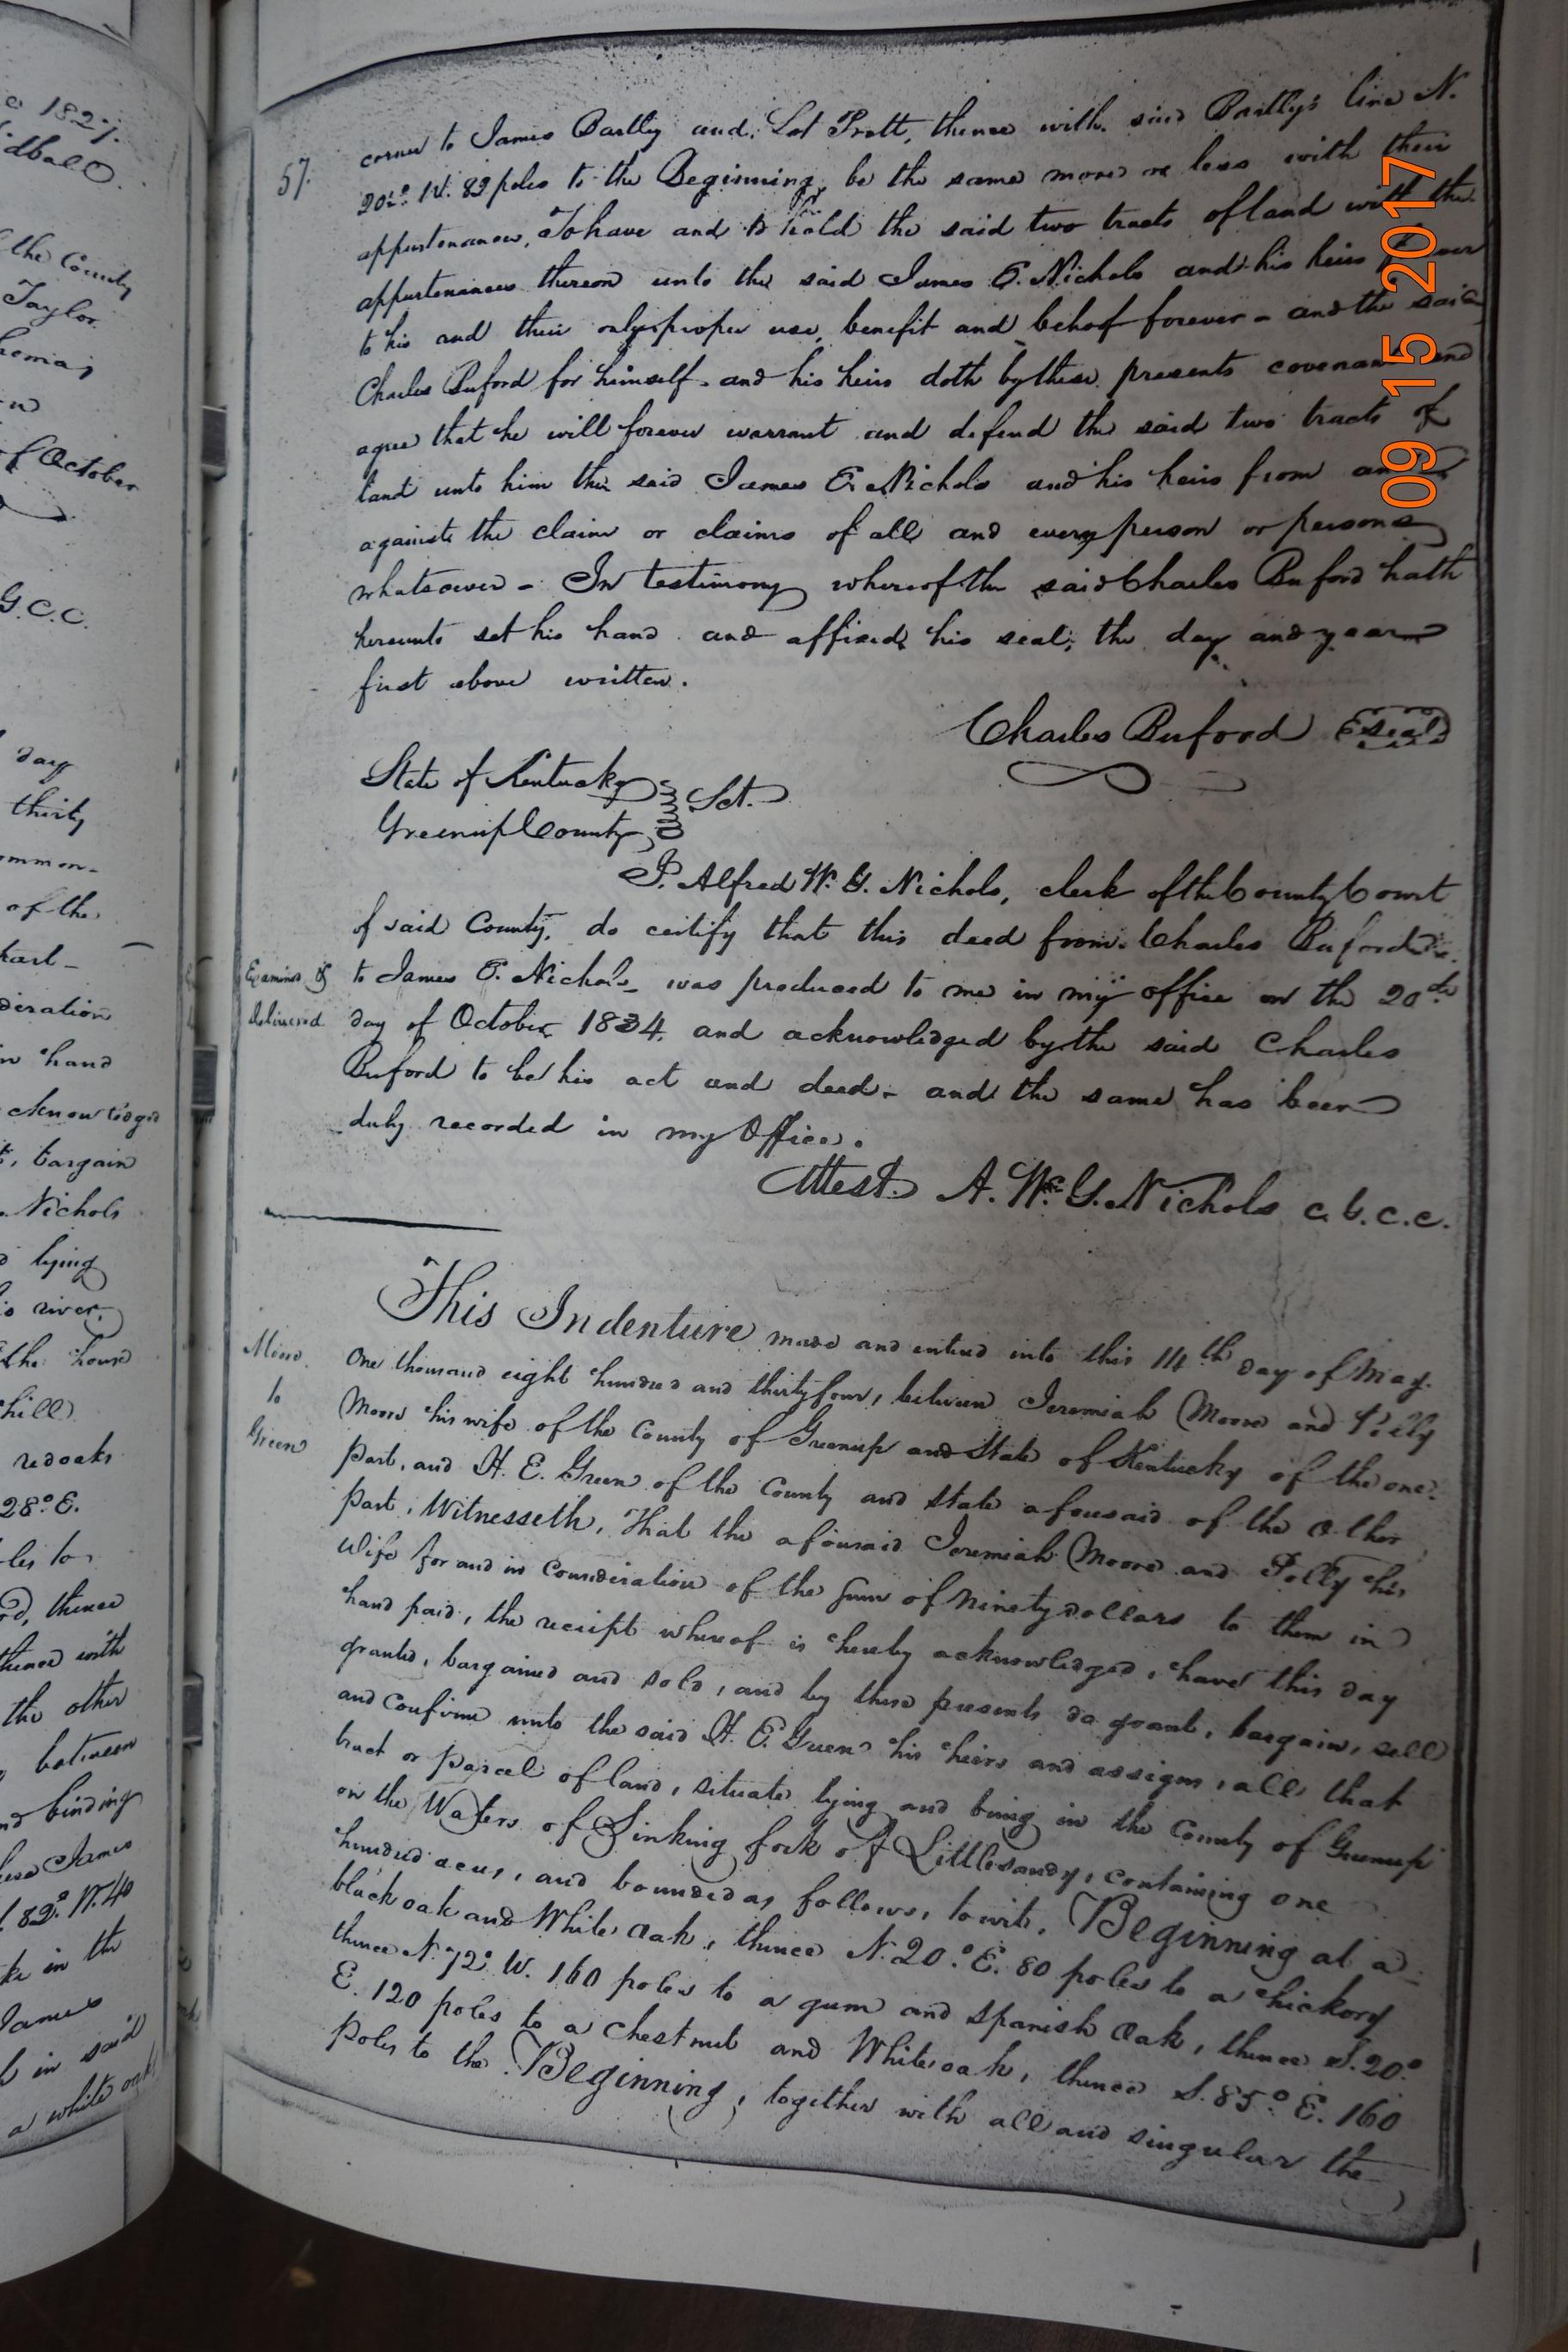 o 1827.
the County
Taylor
of October
G.C.C.
day
thirty
ommon-
of the
deration
in hand
cknowledged
t, bargain
Nichols
lying
river,
the hous
hill
redoaks
28° E.
les to
rd, thence
thence with
the other
between
nd binding
James
82° W. 40
in the
James
in said
a white oak
57.
corner to James Bartley and Lot Pratt, thence with said Bartley's line N.
20½° W. 89 poles to the Beginning, be the same more or less with their
appurtenances, To have and to hold the said two tracts of land with the
appurtenances thereon unto the said James E. Nichols and his heirs forever
to his and their only proper use, benefit and behoof forever - and the said
Charles Buford for himself and his heirs doth by these presents covenant and
agree that he will forever warrant and defend the said two tracts of
land unto him the said James E. Nichols and his heirs from and
against the claim or claims of all and every person or persons
whatsoever - In testimony whereof the said Charles Buford hath
hereunto set his hand and affixed his seal, the day and year
first above written.
Charles Buford Seal
State of Kentucky
Greenup County Sct.
I, Alfred W. G. Nichols, clerk of the County Court
of said County, do certify that this deed from Charles Buford
Examined & delivered
to James E. Nichols was produced to me in my office on the 20th
day of October 1834, and acknowledged by the said Charles
Buford to be his act and deed - and the same has been
duly recorded in my Office.
Attest. A. W. G. Nichols c. G. c. c.
Moore
to
Green
This Indenture made and entered into this 14th day of May.
One thousand eight hundred and thirty four, between Jeremiah Moore and Polly
Moore his wife of the County of Greenup and State of Kentucky of the one
part, and H. E. Green of the County and State aforesaid of the other
part, Witnesseth, That the aforesaid Jeremiah Moore and Polly his
wife for and in consideration of the sum of Ninety dollars to them in
hand paid, the receipt whereof is hereby acknowledged, have this day
granted, bargained and sold, and by these presents do grant, bargain, sell
and confirm unto the said H. E. Green his heirs and assigns, all that
tract or parcel of land, situate lying and being in the County of Greenup
on the Waters of Sinking fork of Little sandy, containing one
hundred acres, and bounded as follows, towit, Beginning at a
black oak and White oak, thence N. 20° E. 80 poles to a hickory
thence N. 72° W. 160 poles to a gum and spanish oak, thence S. 20°
E. 120 poles to a chestnut and White oak, thence S. 85° E. 160
poles to the Beginning, together with all and singular the
09 15 2017